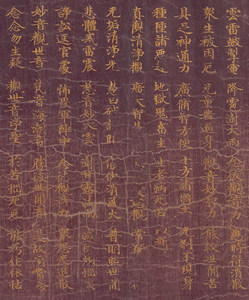 雲雷鼓掣電 降雹澍大雨 應時得消散
衆生被困厄 无量苦逼身 觀音妙智力 能救世間苦
具足神通力 廣脩智方便 十方諸國土 无刹不現身
種種諸惡趣 地獄鬼畜生 生老病死苦
真觀清淨觀
无垢清淨光 慧日破諸闇 能伏災風火 普明照世間
悲體戒雷震 慈意妙大雲
諍訟經官處 怖畏軍陣中 念彼觀音力 衆怨悉退散
妙音觀世音 梵音海潮音 勝彼世間音 是故須常念
念念勿生疑 觀世音淨聖 於苦惱死厄 能爲作依怙